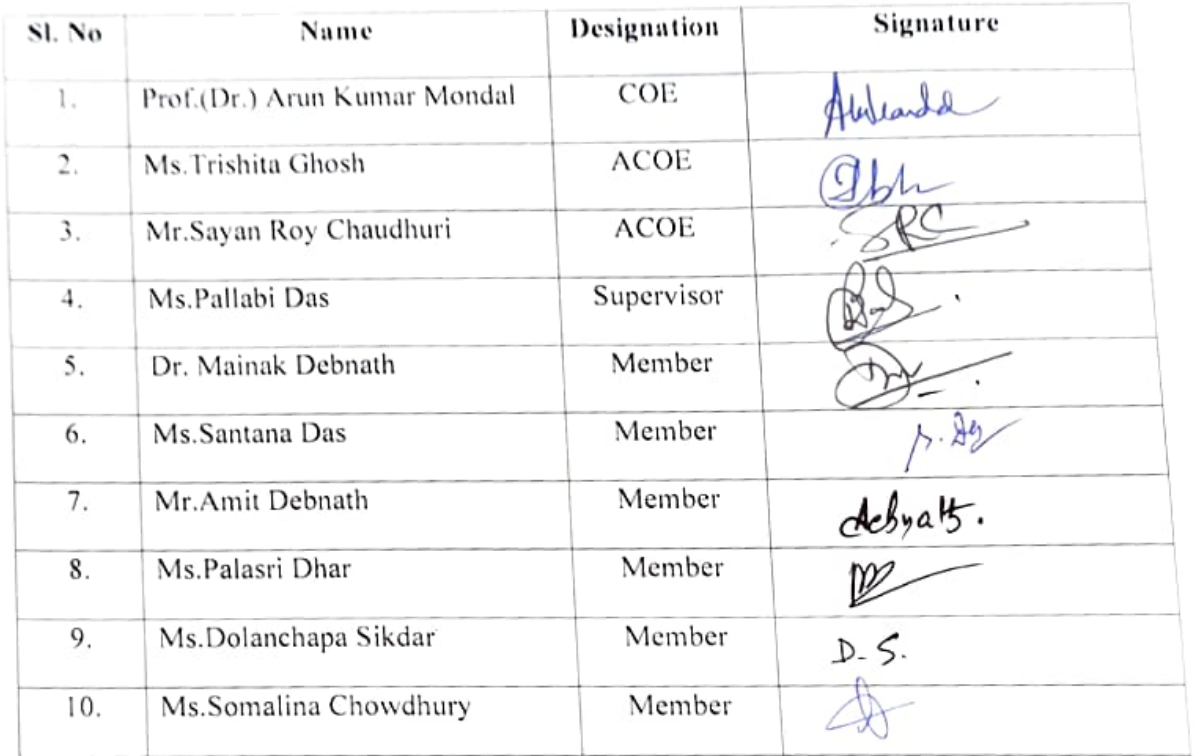 Sl. No Name Designation Signature
1. Prof.(Dr.) Arun Kumar Mondal COE
2. Ms.Trishita Ghosh ACOE
3. Mr.Sayan Roy Chaudhuri ACOE SRC
4. Ms.Pallabi Das Supervisor
5. Dr. Mainak Debnath Member
6. Ms.Santana Das Member
7. Mr.Amit Debnath Member
8. Ms.Palasri Dhar Member
9. Ms.Dolanchapa Sikdar Member D.S.
10. Ms.Somalina Chowdhury Member